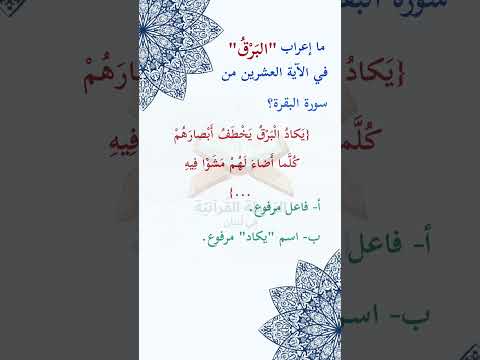 ما إعراب "البَرْقُ"
في الآية العشرين من
سورة البقرة؟
{يَكادُ الْبَرْقُ يَخْطَفُ أَبْصارَهُمْ
كُلَّما أَضاءَ لَهُمْ مَشَوْا فِيهِ
...}
أ- فاعل مرفوع.
ب- اسم "يكاد" مرفوع.